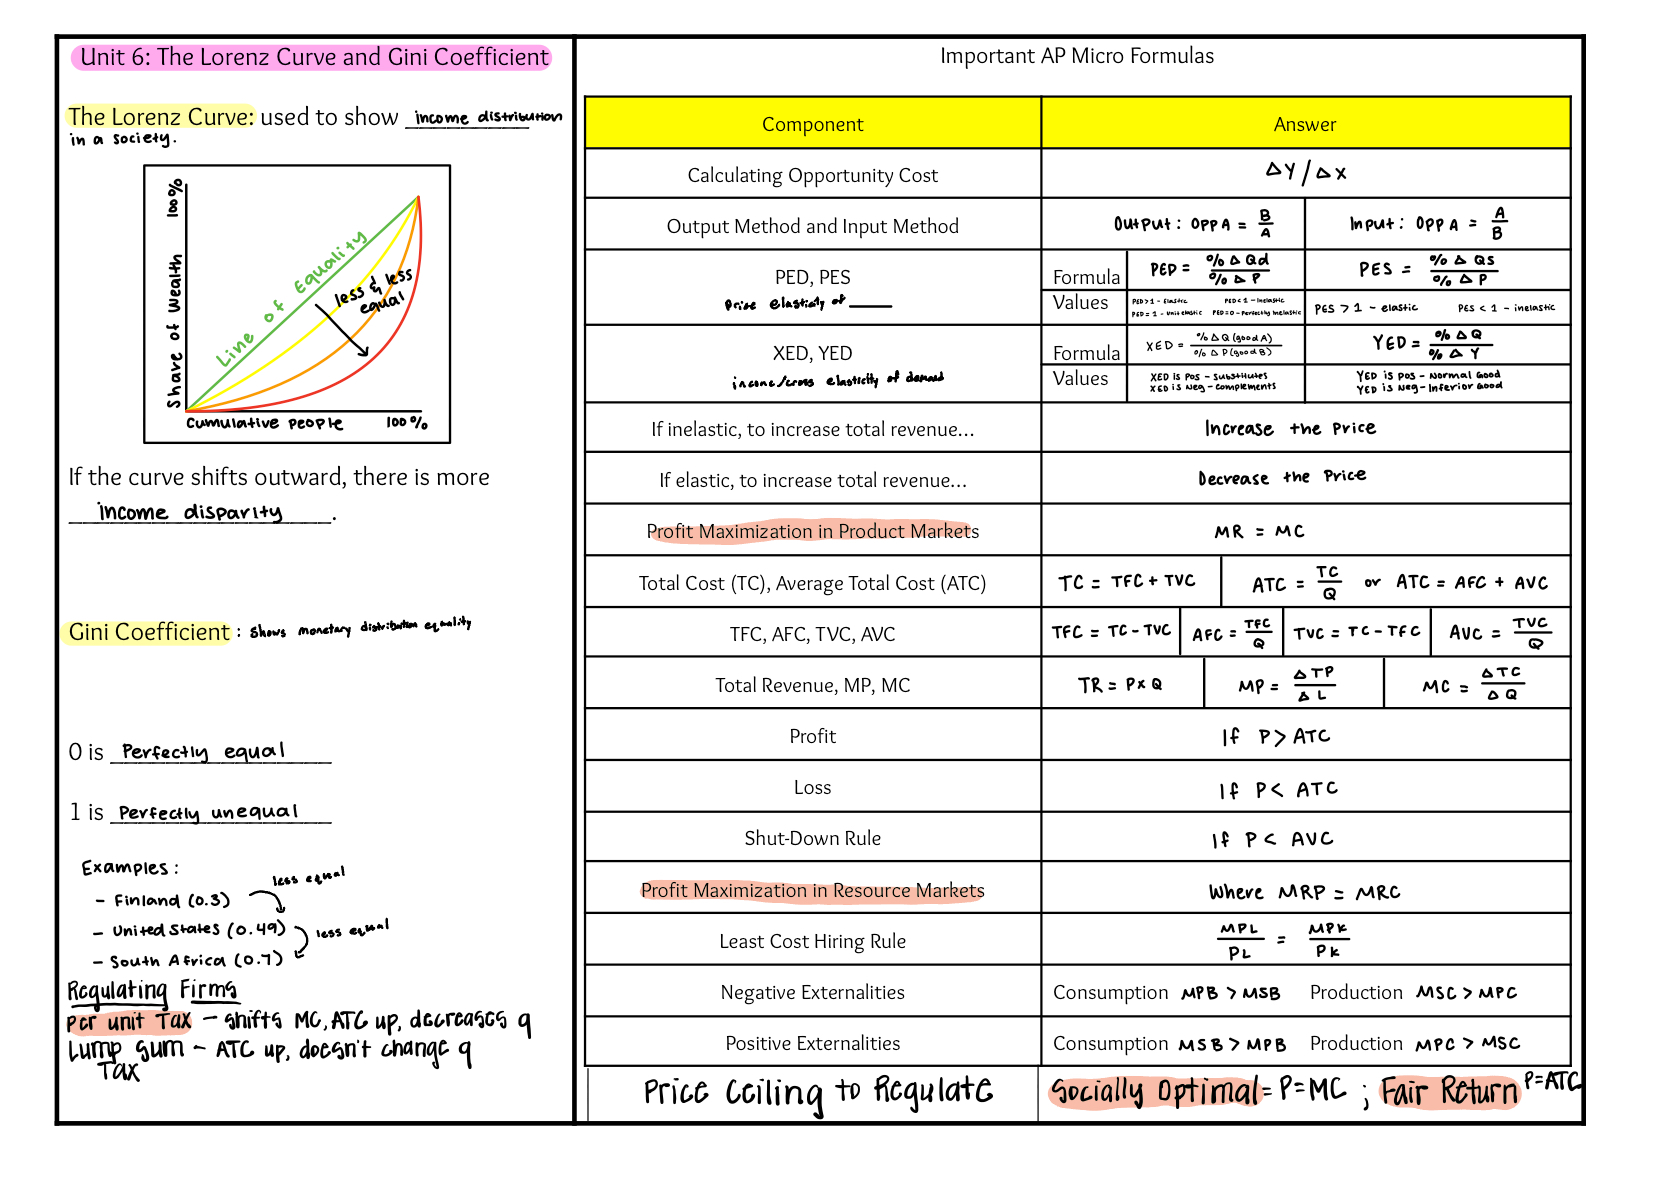 Unit 6: The Lorenz Curve and Gini Coefficient
The Lorenz Curve: used to show income distribution
in a society.
100%
Share of Wealth
Line of Equality
less & less
equal
Cumulative people 100%
If the curve shifts outward, there is more
income disparity.
Gini Coefficient: shows monetary distribution equality
0 is Perfectly equal
1 is Perfectly unequal
Examples:
- Finland (0.3)
less equal
- United States (0.49)
less equal
- South Africa (0.7)
Regulating Firms
per unit Tax - shifts MC, ATC up, decreases q
Lump sum - ATC up, doesn't change q
Tax
Important AP Micro Formulas
Component Answer
Calculating Opportunity Cost ΔY/ΔX
Output Method and Input Method Output: OPP A = B/A Input: OPP A = A/B
PED, PES
Price elasticity of ____
Formula PED = %ΔQd / %ΔP PES = %ΔQS / %ΔP
Values PED>1 - Elastic PED<1 - Inelastic PES > 1 - elastic PES < 1 - inelastic
PED=1 - Unit elastic PED=0 - Perfectly Inelastic
XED, YED
income/cross elasticity of demand
Formula XED = %ΔQ (good A) / %ΔP (good B) YED = %ΔQ / %ΔY
Values XED is Pos - Substitutes YED is Pos - Normal Good
XED is Neg - Complements YED is Neg - Inferior Good
If inelastic, to increase total revenue... Increase the Price
If elastic, to increase total revenue... Decrease the Price
Profit Maximization in Product Markets MR = MC
Total Cost (TC), Average Total Cost (ATC) TC = TFC + TVC ATC = TC/Q or ATC = AFC + AVC
TFC, AFC, TVC, AVC TFC = TC - TVC AFC = TFC/Q TVC = TC - TFC AVC = TVC/Q
Total Revenue, MP, MC TR = P x Q MP = ΔTP/ΔL MC = ΔTC/ΔQ
Profit If P > ATC
Loss If P < ATC
Shut-Down Rule If P < AVC
Profit Maximization in Resource Markets Where MRP = MRC
Least Cost Hiring Rule MPL/PL = MPK/PK
Negative Externalities Consumption MPB > MSB Production MSC > MPC
Positive Externalities Consumption MSB > MPB Production MPC > MSC
Price Ceiling to Regulate Socially Optimal = P=MC ; Fair Return P=ATC